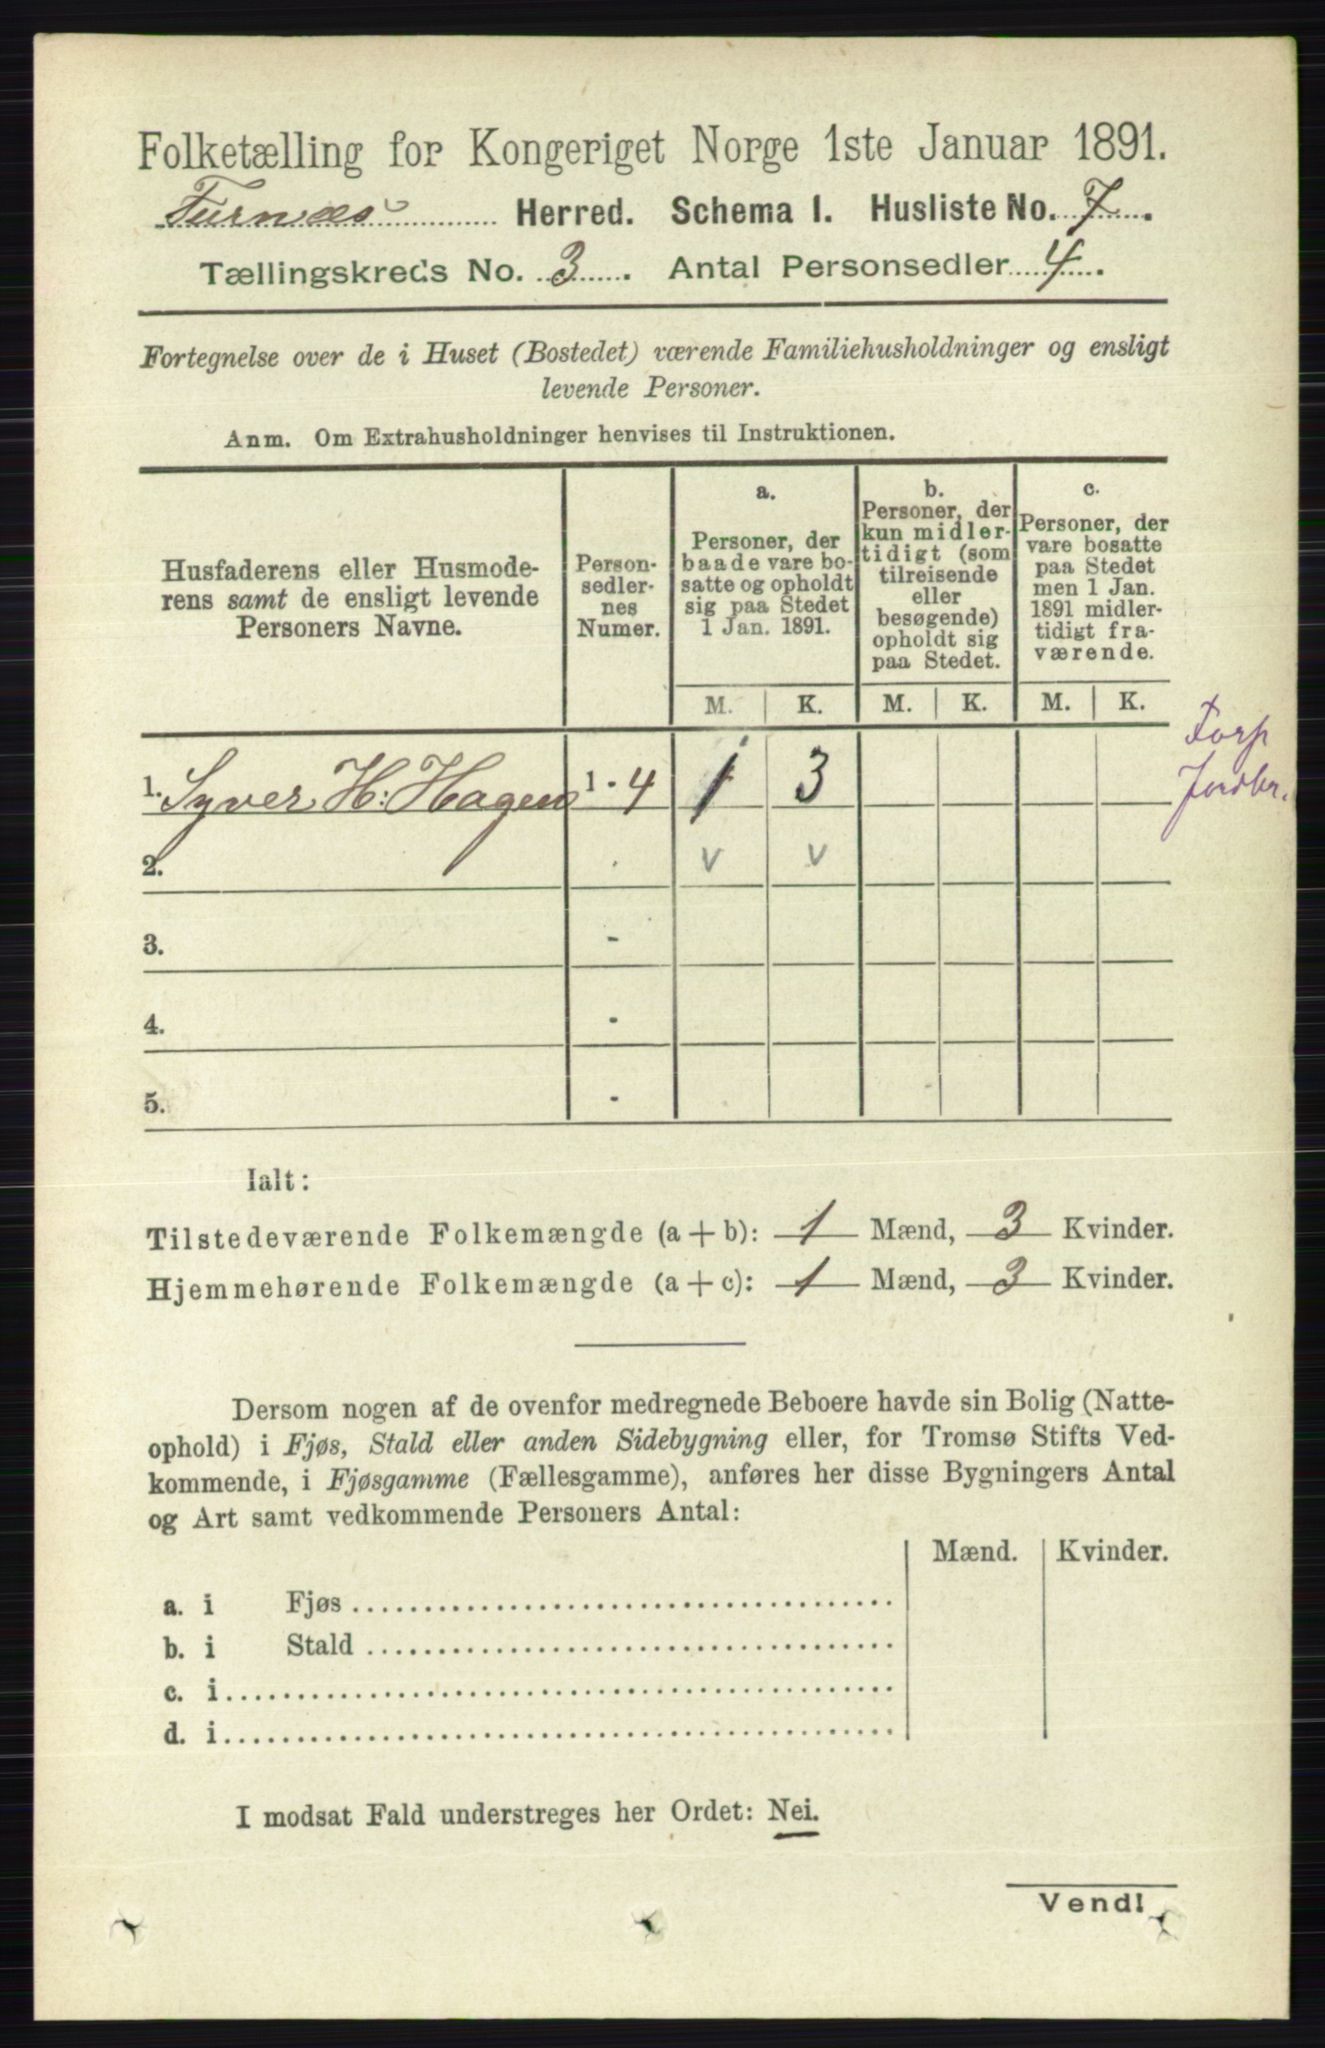 Folketælling for Kongeriget Norge 1ste Januar 1891.
Furnæs Herred. Schema I. Husliste No. 7.
Tællingskreds No. 3. Antal Personsedler 4.
Fortegnelse over de i Huset (Bostedet) værende Familiehusholdninger og ensligt
levende Personer.
Anm. Om Extrahusholdninger henvises til Instruktionen.
Husfaderens eller Husmode-
rens samt de ensligt levende
Personers Navne.
Person-
sedler-
nes
Numer.
a.
Personer, der
baade vare bo-
satte og opholdt
sig paa Stedet
1 Jan. 1891.
b.
Personer, der
kun midler-
tidigt (som
tilreisende
eller
besøgende)
opholdt sig
paa Stedet.
c.
Personer, der
vare bosatte
paa Stedet
men 1 Jan.
1891 midler-
tidigt fra-
værende.
M. K. M. K. M. K.
1. Syver H: Hagen 1 - 4 1 3
Torp
Jordbr.
2. - v v
3. -
4. -
5. -
Ialt:
Tilstedeværende Folkemængde (a + b): 1 Mænd, 3 Kvinder.
Hjemmehørende Folkemængde (a + c): 1 Mænd, 3 Kvinder.
Dersom nogen af de ovenfor medregnede Beboere havde sin Bolig (Natte-
ophold) i Fjøs, Stald eller anden Sidebygning eller, for Tromsø Stifts Ved-
kommende, i Fjøsgamme (Fællesgamme), anføres her disse Bygningers Antal
og Art samt vedkommende Personers Antal:
Mænd. Kvinder.
a. i Fjøs
b. i Stald
c. i
d. i
I modsat Fald understreges her Ordet: Nei.
Vend!